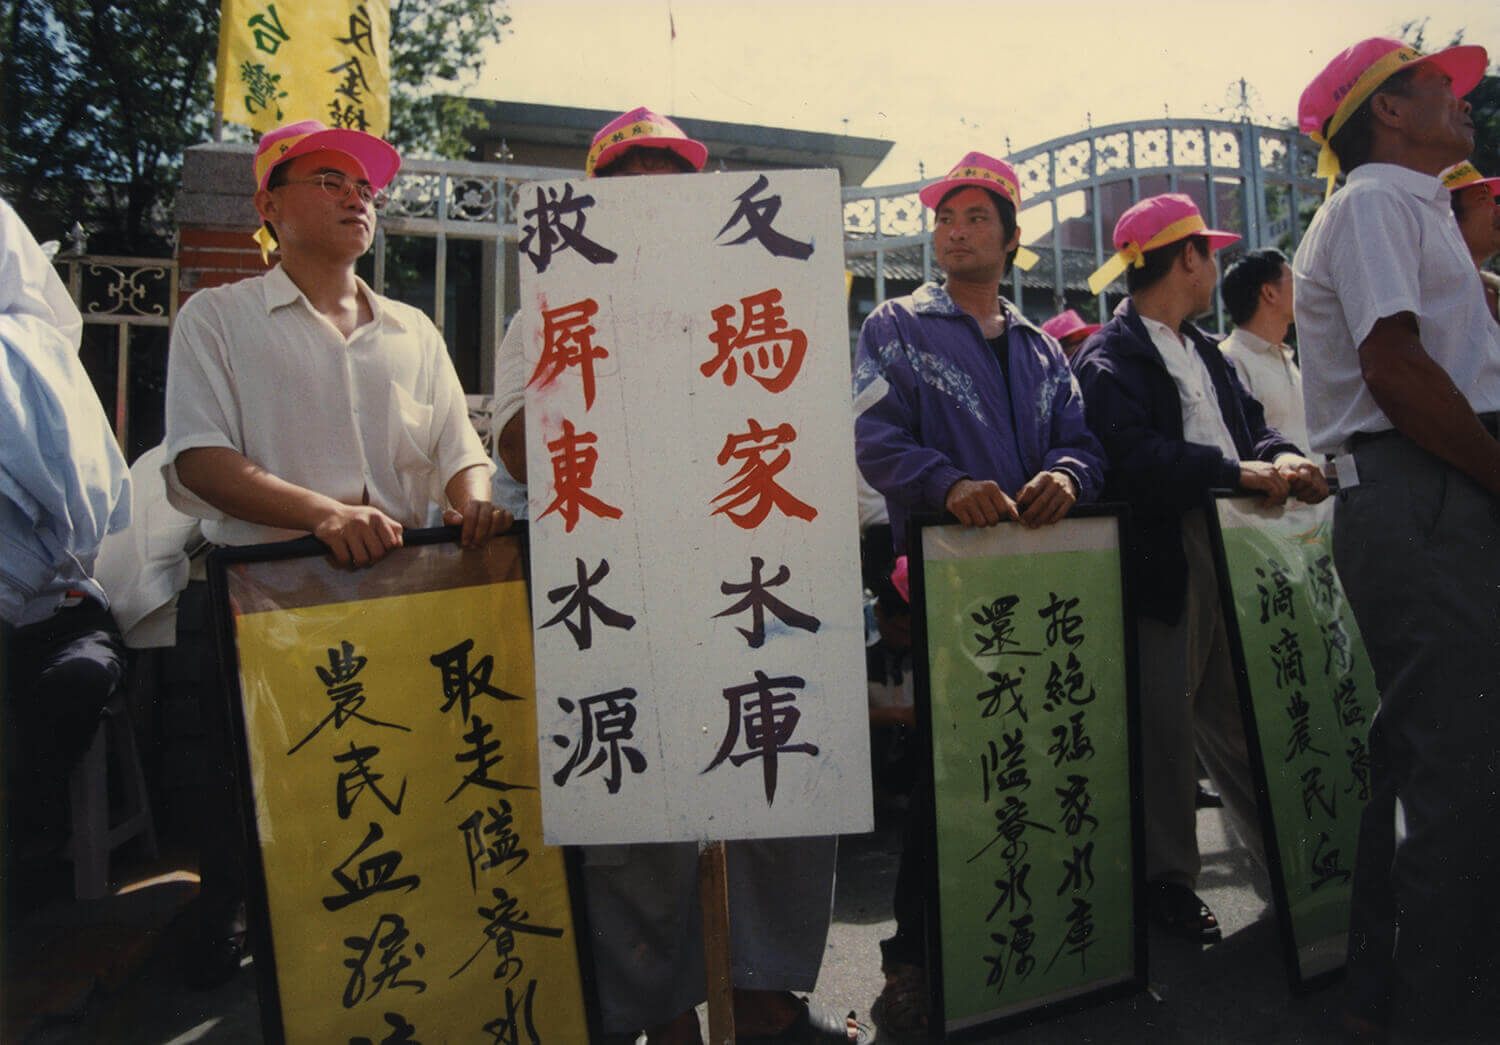 反金權
台灣
反瑪家水庫
救屏東水源
取走隘寮水
農民血淚
拒絕瑪家水庫
還我隘寮水源
源源隘寮
滴滴農民血